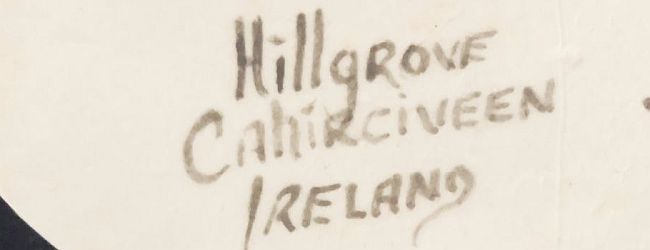 Hillgrove
Cahirciveen
Ireland